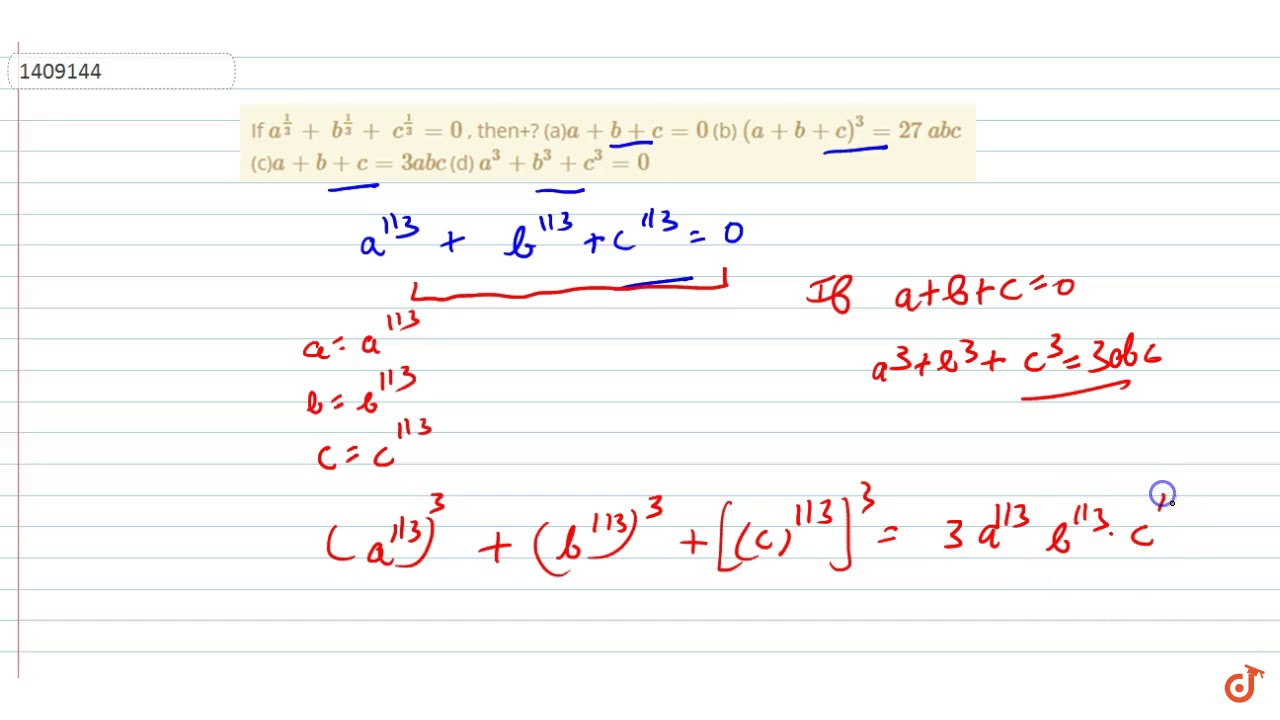 1409144
If a^{1/3} + b^{1/3} + c^{1/3} = 0 , then+? (a)a + b + c = 0 (b) (a + b + c)^3 = 27 abc
(c)a + b + c = 3abc (d) a^3 + b^3 + c^3 = 0
a^{1/3} + b^{1/3} + c^{1/3} = 0
If a+b+c=0
a = a^{1/3}
a^3+b^3+c^3=3abc
b = b^{1/3}
c = c^{1/3}
(a^{1/3})^3 + (b^{1/3})^3 + [(c)^{1/3}]^3 = 3 a^{1/3} b^{1/3} . c^1